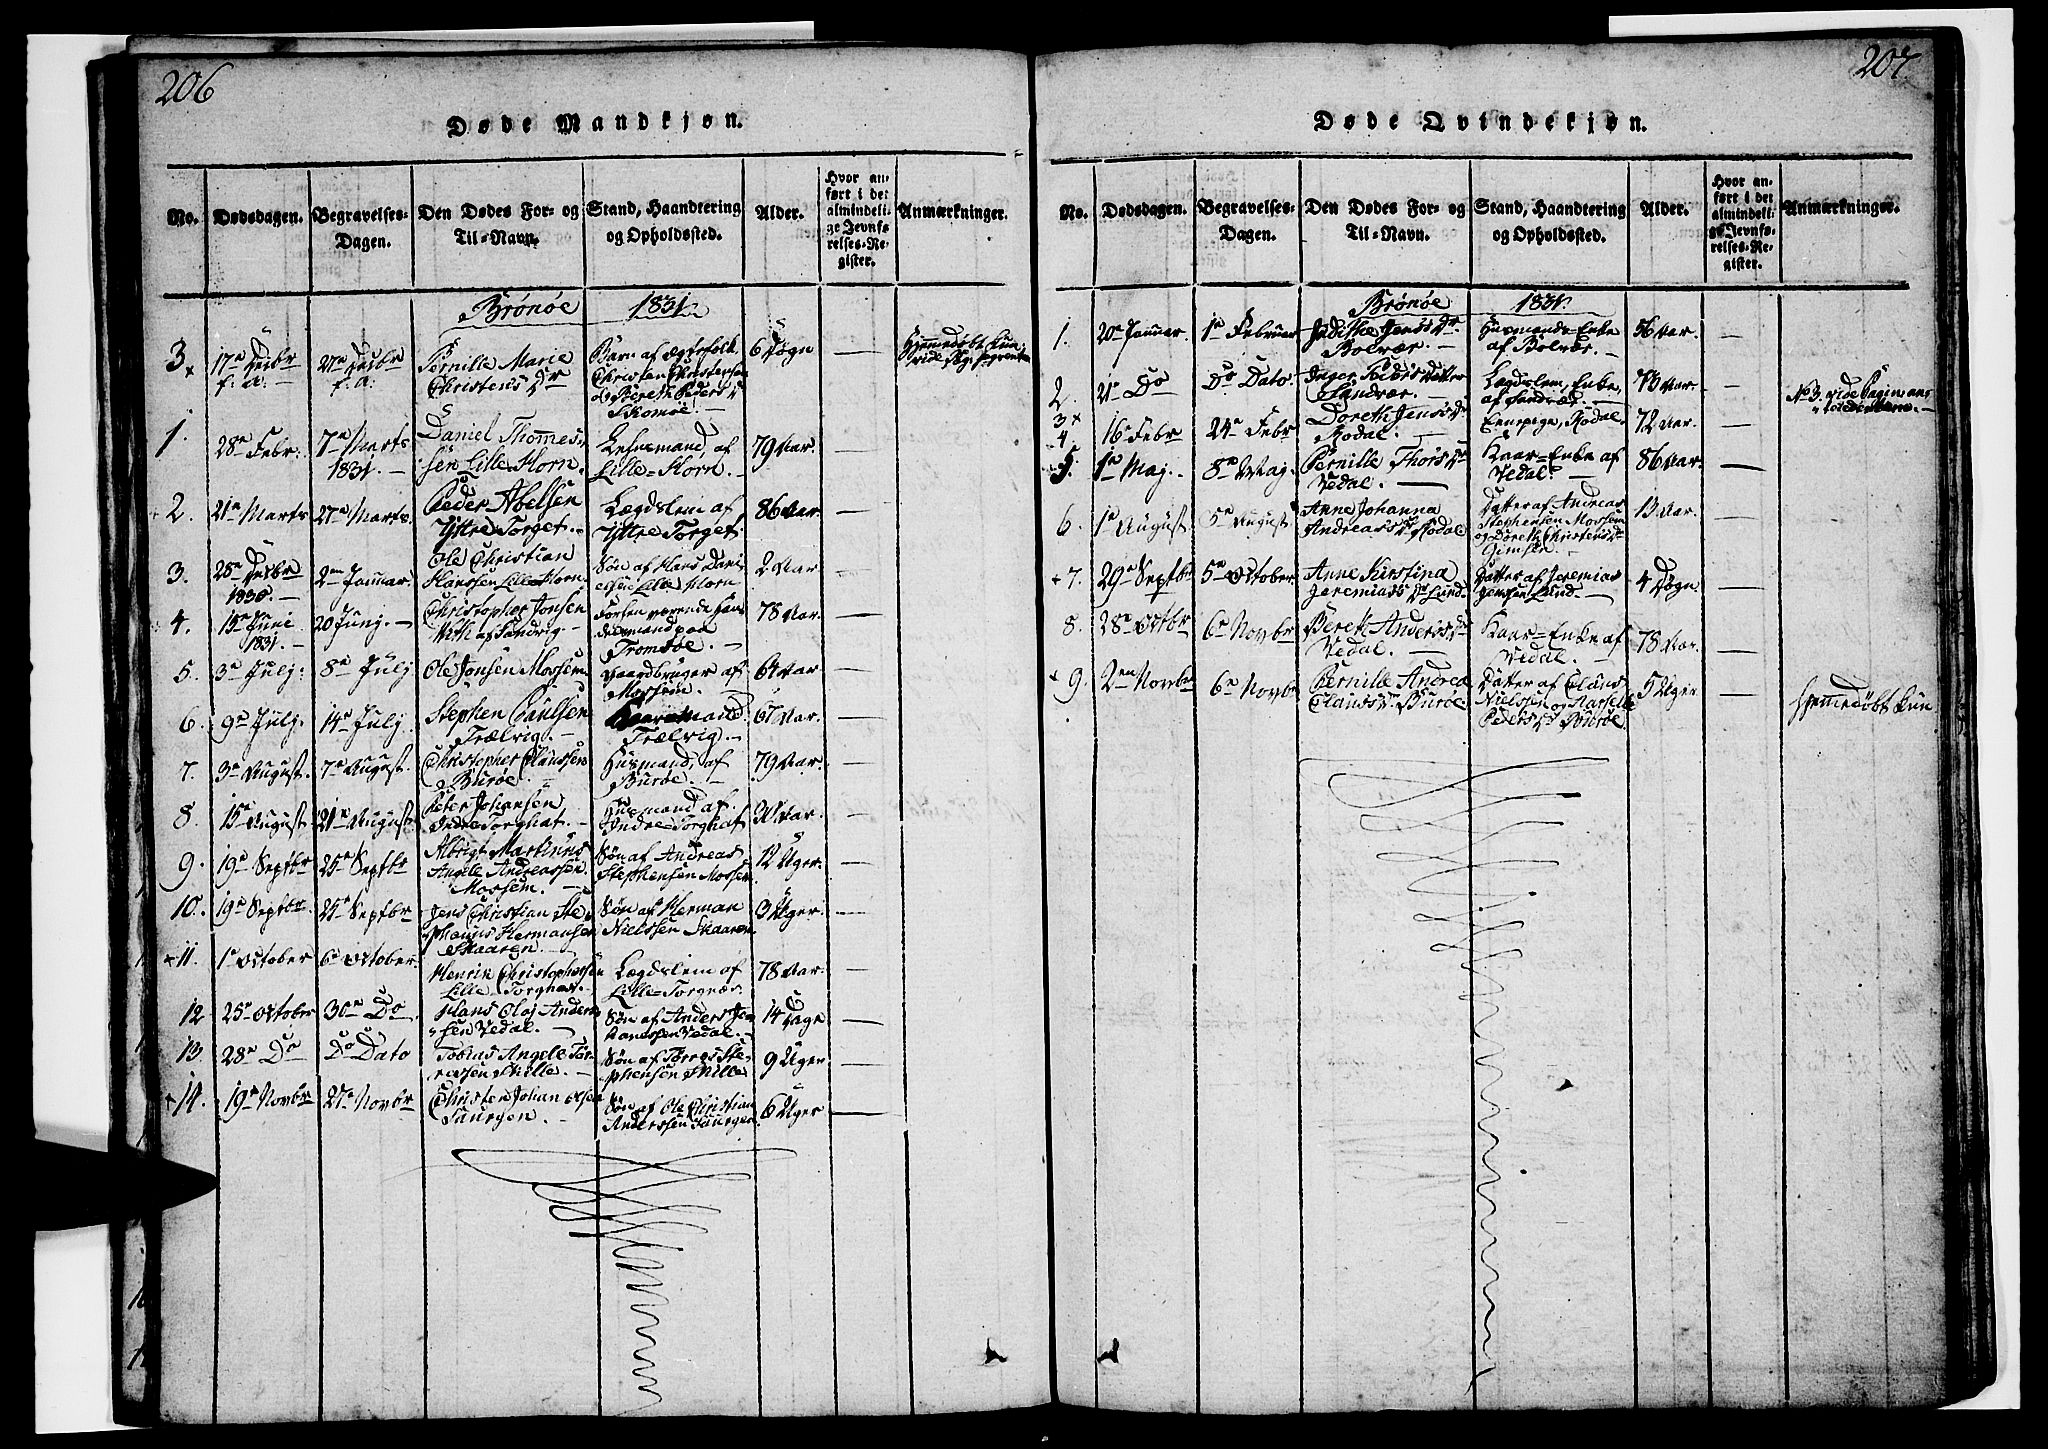 206
Døde Mandkjøn.
No. Dødsdagen. Begravelses-Dagen. Den Dødes For- og Til-Navn. Stand, Haandtering og Opholdssted. Alder. Hvor anført i det almindelige Jevnførelses-Register. Anmærkninger.
Brønøe 1831.
3 17de Decbr f. a. 27de Decbr f. a. Pernille Marie Christens Dr Barn af Ægtefolk Christen Christensen og Bereth Peders Dr Tromøe. 6 Døgn — Hjemedøbt kun
1. 28de Febr: 7de Marts 1831. Daniel Thommessen Lille Horn. Lefnsmand, af Lille-Horn. 79 Aar. —
2. 21de Marts 27de Marts. Peder Abelsen Yttre Torget. Lægdslem af Yttre Torget. 86 Aar. —
3. 28de Decbr 1830. 2den Januar. Ole Christian Hanssen Lille Horn. Søn af Hans Danielsen Lille Horn 2 Aar —
4. 15de Juni 1831. 20 Junj. Christopher Jonsen Wik af Sandvig Forhen værende Handelsmand paa Tromsøe. 78 Aar. —
5. 3de Julj: 8de Julj Ole Jonsen Mossem Gaardbruger af Mossem. 64 Aar —
6. 9de Julj. 14de Julj Stephen Paulsen Trælvig. Kaarmand, Trælvig. 67 Aar. —
7. 3de August. 7de August. Christopher Claussen Burøe. Husmand, af Burøe. 79 Aar. —
8. 15de August 21de August Peter Johansen, Indre Torghat. Husmand af Indre Torghat 30 Aar. —
9. 19de Septbr 25de Septbr Albrigt Martinus Angele Andreassen Mossem. Søn af Andreas Stephensen Mossem 12 Uger. —
10. 19de Septbr. 25de Septbr Jens Christian Stephanus Hermansen Skaaren. Søn af Herman Nielssen Skaaren. 3 Uger. —
11. 1de October 6de October. Henrik Christophersen Lille-Torgnes. Lægdslem af Lille-Torgnæs. 78 Aar. —
12 25de October 30de Do Hans Olaj Andersen Vedal. Søn af Anders Hansen Vedal. 14 Dage —
13. 28de Do Do Dato Tobias Angele Torresen Hille. Søn af Torres Stephensen Hille 9 Uger —
14. 19de Novbr 27de Novbr Christen Johan Olsen Saurgen. Søn af Ole Christian Anderssen Saurgen. 6 Uger —
207
Døde Qvindekjøn.
No. Dødsdagen. Begravelses-Dagen. Den Dødes For- og Til-Navn. Stand, Haandtering og Opholdssted. Alder. Hvor anført i det almindelige Jevnførelses-Register. Anmærkninger.
Brønøe 1831.
1. 20de Januar 1de Februar Judithe Jens Dr Bolvær. Husmands-Enke af Bolvær. 56 Aar. —
2 21de Do Do Dato. Inger Peders Datter Sandvær. Lægdslem, Enke, af Sandvær. 78 Aar. — No 3. vide Pagina
3 4. 16 Febr 24de Febr Doreth Jens Dr Rødal. Rødal. 72 Aar. —
5. 1de Maj. 8de Maj. Pernille Thors Dr Vedal. Kaar-Enke af Vedal. 86 Aar. —
6. 1de August 5de August Anne Johanna Andreas Dr Rødal Datter af Andreas Stephensen Mossem og Doreth Christens Dr 13 Aar. —
7. 29de Septbr 5de October. Anne Kirstina Jeremias Dr Lund. Datter af Jeremias Jensen Lund. 4 Døgn. —
8. 28de Octbr 6de Novbr Bereth Anders Dr Vedal. Kaar-Enke af Vedal. 78 Aar. —
9. 2den Novbr 6de Novbr Pernille Andrea Claus Dr Burøe. Datter af Claus Nielssen og Peders Dr Burøe. 5 Uger — Hjemmedøbt kun